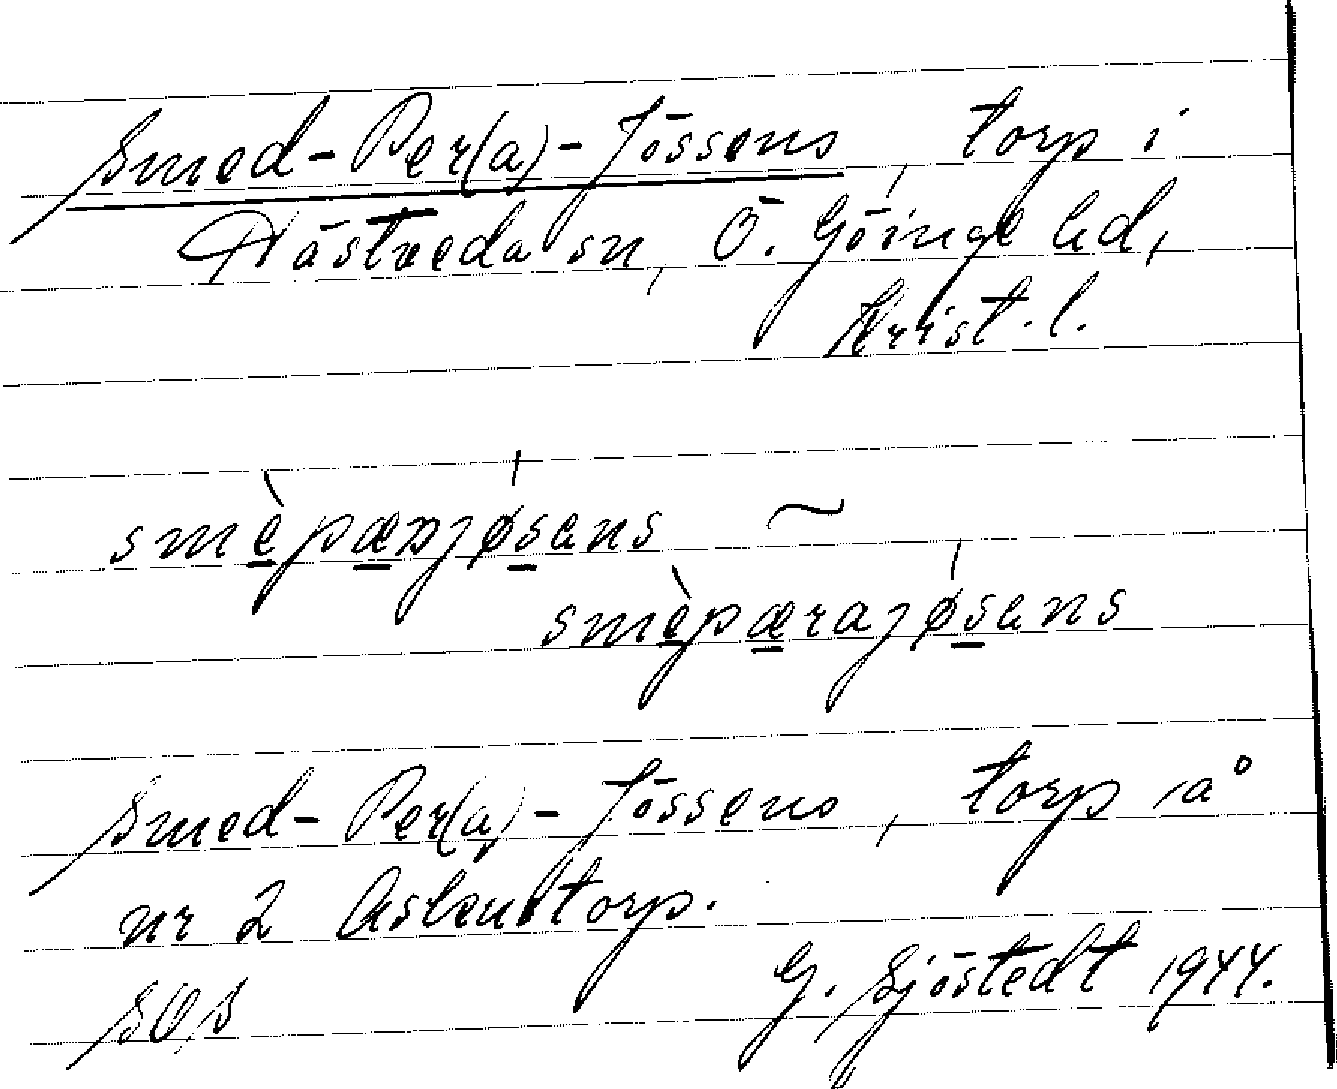 Smed-Per(a)-Jössens, torp i
Hästveda sn, Ö. Göinge hd,
Krist. l.
smèpærjøsens ~
smèpærajøsens
Smed-Per(a)-Jössens, torp å
nr 2
G. Sjöstedt 1944.